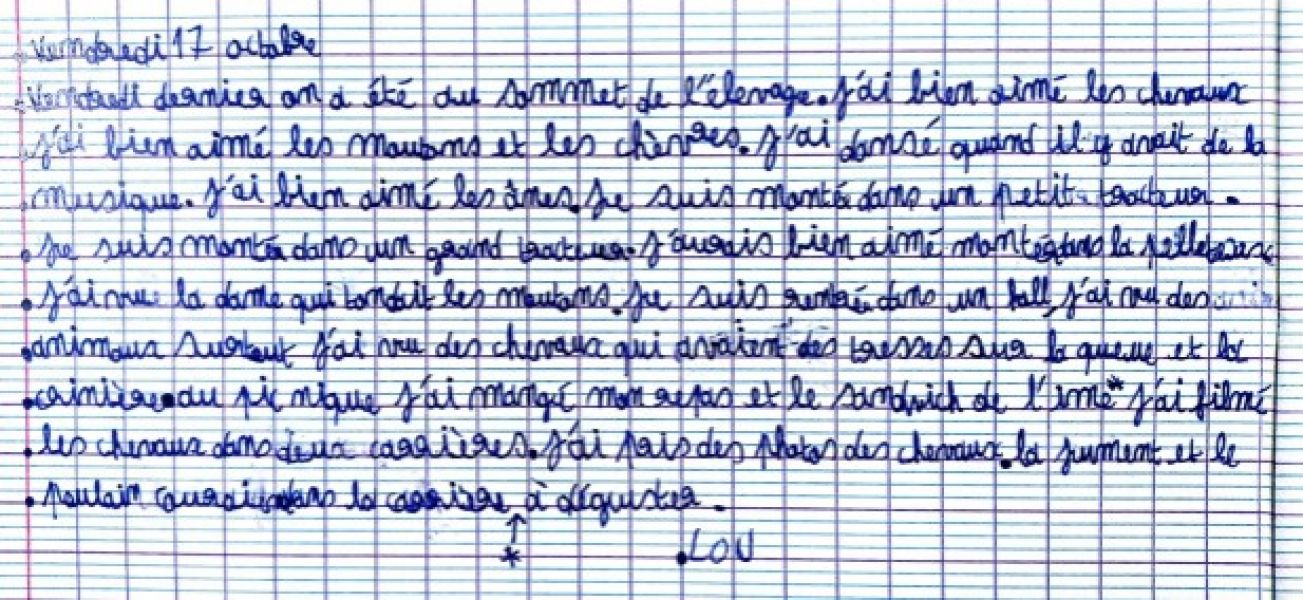 Vendredi 17 octobre
Vendredi dernier on a été au sommet de l'élevage. J'ai bien aimé les chevaux
j'ai bien aimé les moutons et les chèvres. J'ai dansé quand il y avait de la
musique. J'ai bien aimé les ânes. Je suis montée dans un petit tracteur.
Je suis montée dans un grand tracteur. J'aurais bien aimé montée dans la
J'ai vu la dame qui tondait les moutons. Je suis rentrée dans un hall, j'ai vu des
animaux surtout j'ai vu des chevaux qui avaient des tresses sur la queue et la
crinière. au pic nique j'ai mangé mon repas et le sandwich de l'ime* j'ai filmé
les chevaux dans deux carrières. J'ai pris des photos des chevaux. la jument et le
poulain dans la carrière à
↑
* LOU